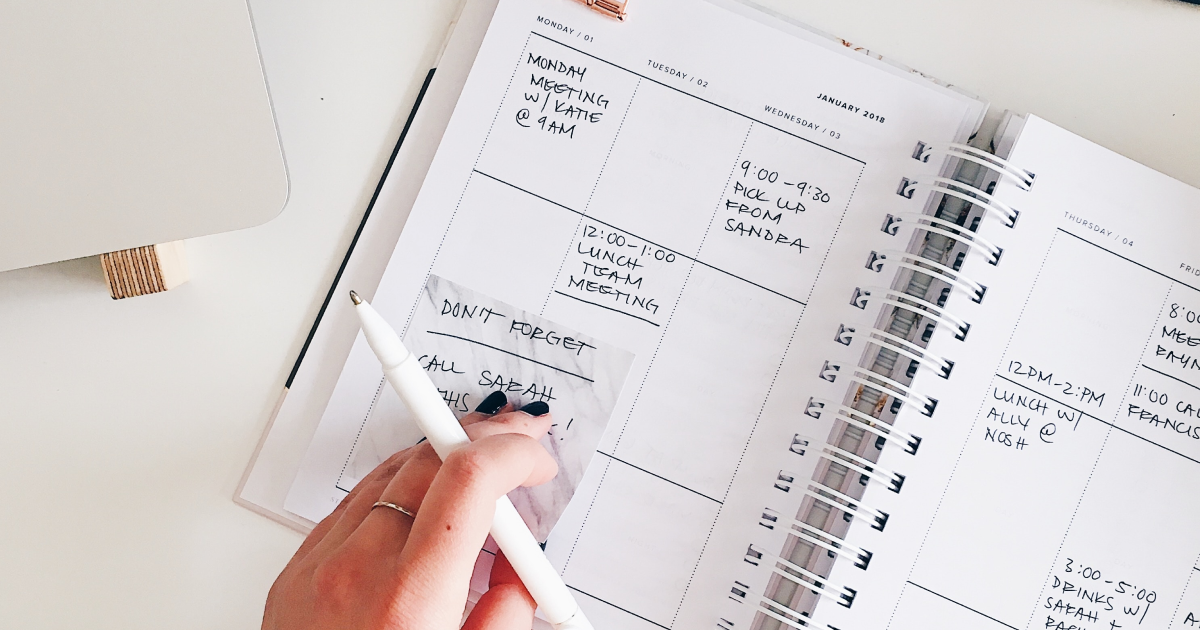 MONDAY / 01
MONDAY
MEETING
W/ KATIE
@ 9AM
TUESDAY / 02
12:00-1:00
LUNCH
TEAM
MEETING
JANUARY 2018
WEDNESDAY / 03
9:00-9:30
PICK UP
FROM
SANDRA
DON'T FORGET
CALL SARAH
!
THURSDAY / 04
12PM-2:PM
LUNCH W/
ALLY @
NOSH
3:00-5:00
DRINKS W/
SARAH +
11:00